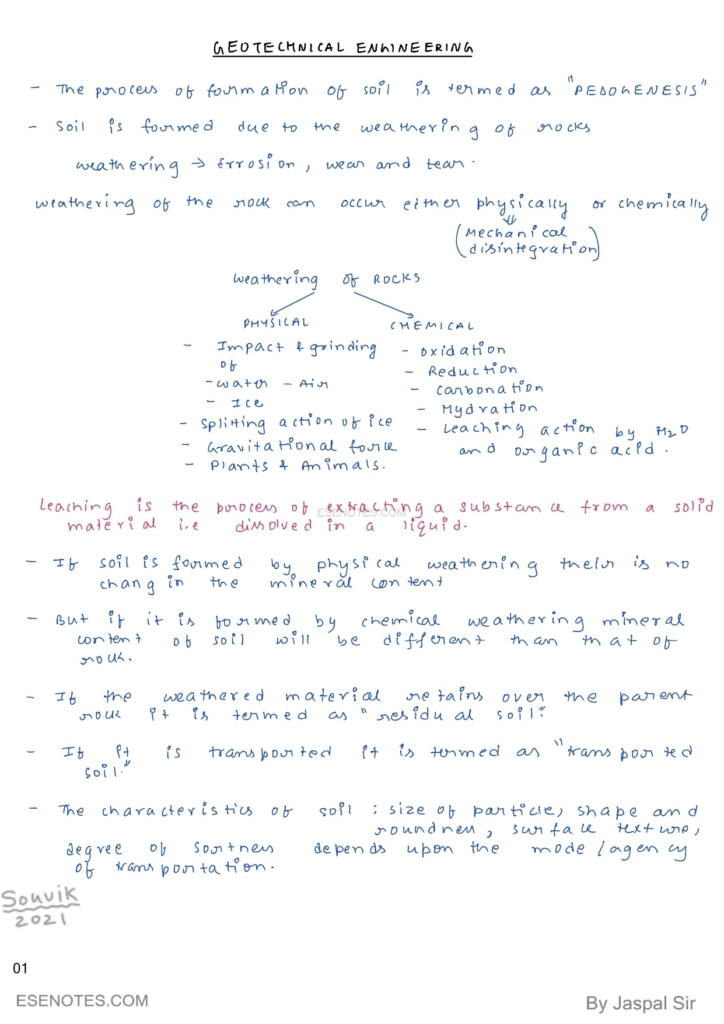 GEOTECHNICAL ENGINEERING
- The process of formation of soil is termed as "PEDOGENESIS"
- Soil is formed due to the weathering of rocks
weathering → Errosion, wear and tear.
weathering of the rock can occur either physically or chemically
⇓
(Mechanical
disintegration)
weathering of ROCKS
PHYSICAL CHEMICAL
- Impact & grinding - oxidation
of - Reduction
- water - Air - carbonation
- Ice - Hydration
- splitting action of ice - Leaching action by H2O
- Gravitational force and organic acid.
- Plants & Animals.
Leaching is the process of extracting a substance from a solid
ESENOTES.COM
material i.e dissolved in a liquid.
- If soil is formed by physical weathering their is no
chang in the mineral content
- But if it is formed by chemical weathering mineral
content of soil will be different than that of
rock.
- If the weathered material retains over the parent
rock it is termed as "residual soil."
- If it is transported it is termed as "transported
soil."
- The characteristics of soil : size of particle, shape and
roundness, surface texture,
degree of sortness depends upon the mode/agency
of transportation.
Souvik
2021
01
ESENOTES.COM By Jaspal Sir